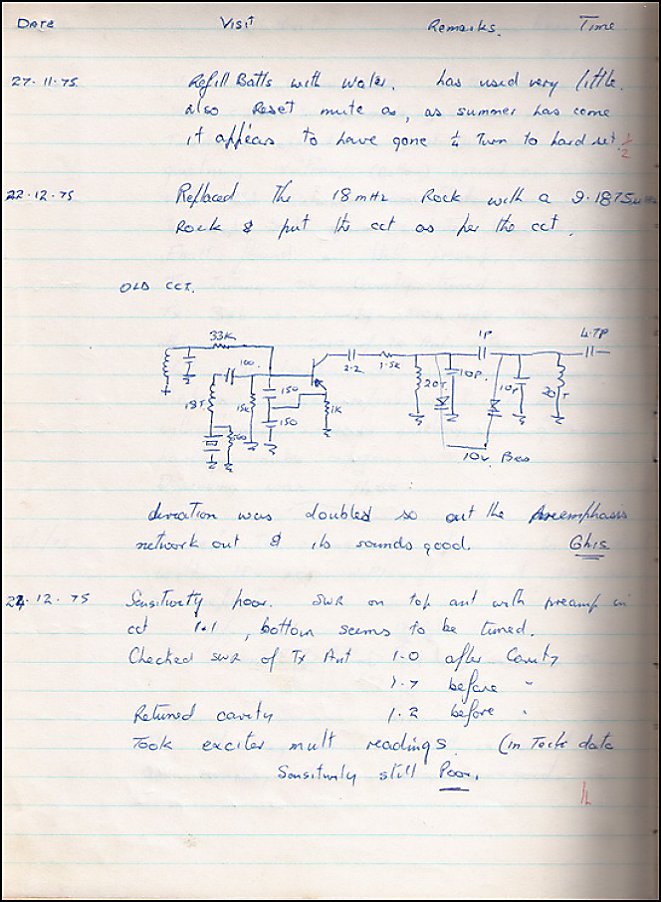 DATE Visit Remarks. Time
27.11.75 Refill Batts with water. has used very little.
also Reset mute as, as summer has come
it appears to have gone ¼ Turn to hard set. ½
22.12.75 Replaced The 18 mHz Rock with a 9.1875
Rock & put the cct as per the cct.
OLD CCT.
33K 1P 4.7P
100 2.2 1.5K
18T 15K 150 1K 20T 10P 10P 20T
560 150
10v.
deviation was doubled so cut the Preemphasis
network out & its sounds good. Ghis
22.12.75 Sensitivity poor. SWR on top ant with preamp in
cct 1.1, bottom seems to be tuned.
Checked SWR of Tx Ant 1.0 after Cavity
1.7 before "
Retuned cavity 1.2 before "
Took exciter mult readings. (in Tech data
Sensitivity still Poor.